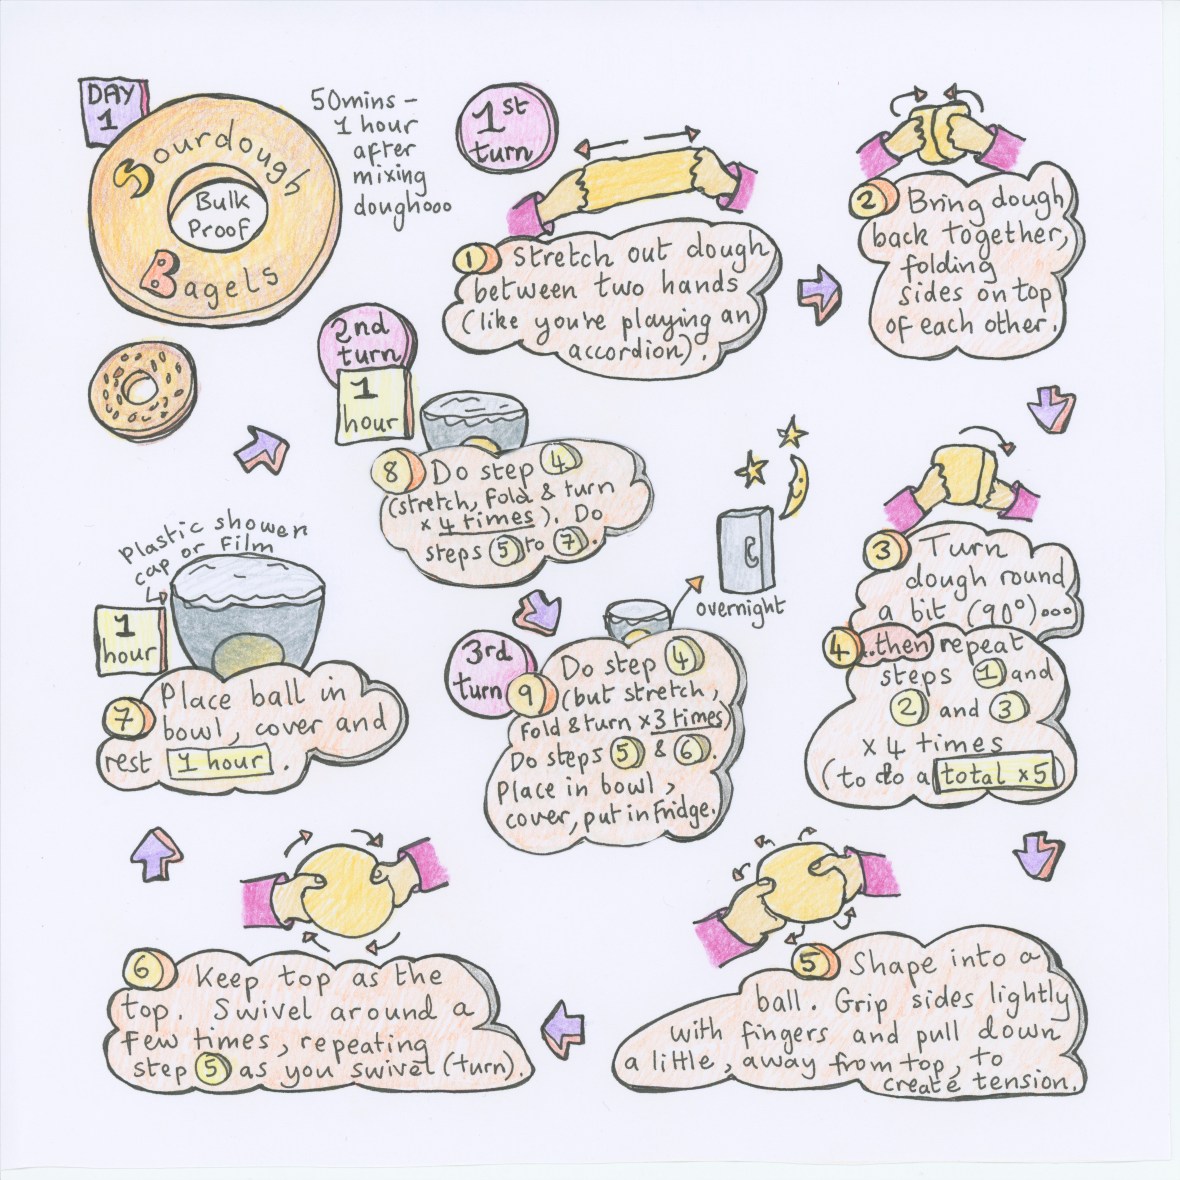 DAY
1
Sourdough
Bulk
Proof
Bagels
50mins -
1 hour
after
mixing
doughooo
1st
turn
1 Stretch out dough
between two hands
(like you're playing an
accordion).
2 Bring dough
back together,
folding
sides on top
of each other.
3 Turn
dough round
a bit (90°)...
4 ..then repeat
steps 1 and
2 and 3
x 4 times
(to do a total x5
5 Shape into a
ball. Grip sides lightly
with fingers and pull down
a little, away from top, to
create tension.
6 Keep top as the
top. Swivel around a
few times, repeating
step 5 as you swivel (turn).
plastic shower
cap or film
1
hour
7 Place ball in
bowl, cover and
rest 1 hour.
2nd
turn
1
hour
8 Do step 4
(stretch, fold & turn
x 4 times). Do
steps 5 to 7.
3rd
turn
9 Do step 4
(but stretch,
fold & turn x 3 times)
Do steps 5 & 6.
Place in bowl,
cover, put in fridge.
overnight